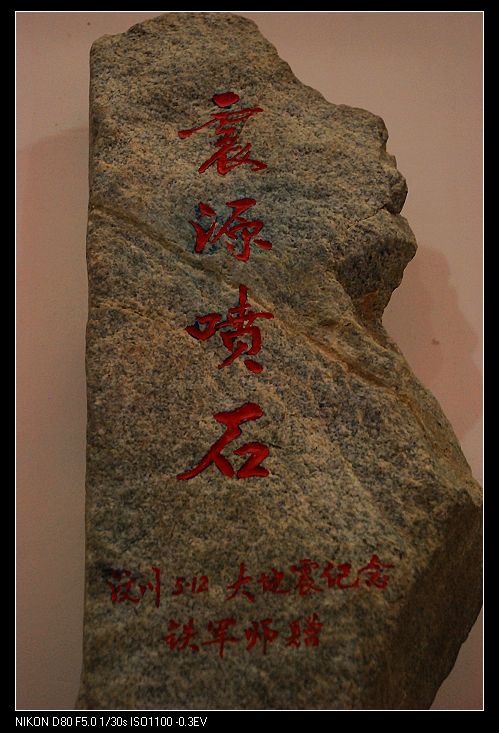 震源喷石
汶川 5·12 大地震纪念
铁军师赠
NIKON D80 F5.0 1/30s ISO1100 -0.3EV